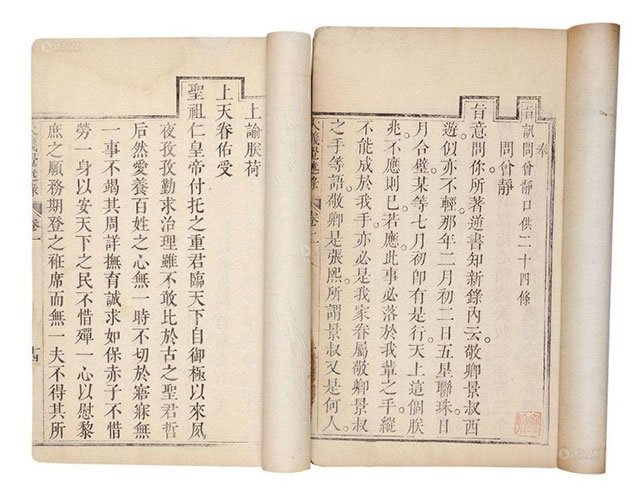 奉
旨訊問曾靜口供二十四條
問曾靜
旨意問你所著逆書知新錄內云。敬卿景叔西
遊似亦不輕那年二月初二日五星聯珠日
月合璧某等七月初卽有是行。天上這個朕
兆。不應則已。若應此事必落於我輩之手。縱
不能成於我手。亦必是我家眷屬敬卿景叔
之手等語。敬卿是張熙。所謂景叔又是何人。
大義覺迷錄 卷二
上諭朕荷
上天眷佑受
聖祖仁皇帝付托之重君臨天下自御極以來夙
夜孜孜勤求治理雖不敢比於古之聖君哲
后然愛養百姓之心無一時不切於寤寐無
一事不竭其周詳撫育誠求如保赤子不惜
勞一身以安天下之民不惜殫一心以慰黎
庶之願務期登之袵席而無一夫不得其所
大義覺迷錄 卷一